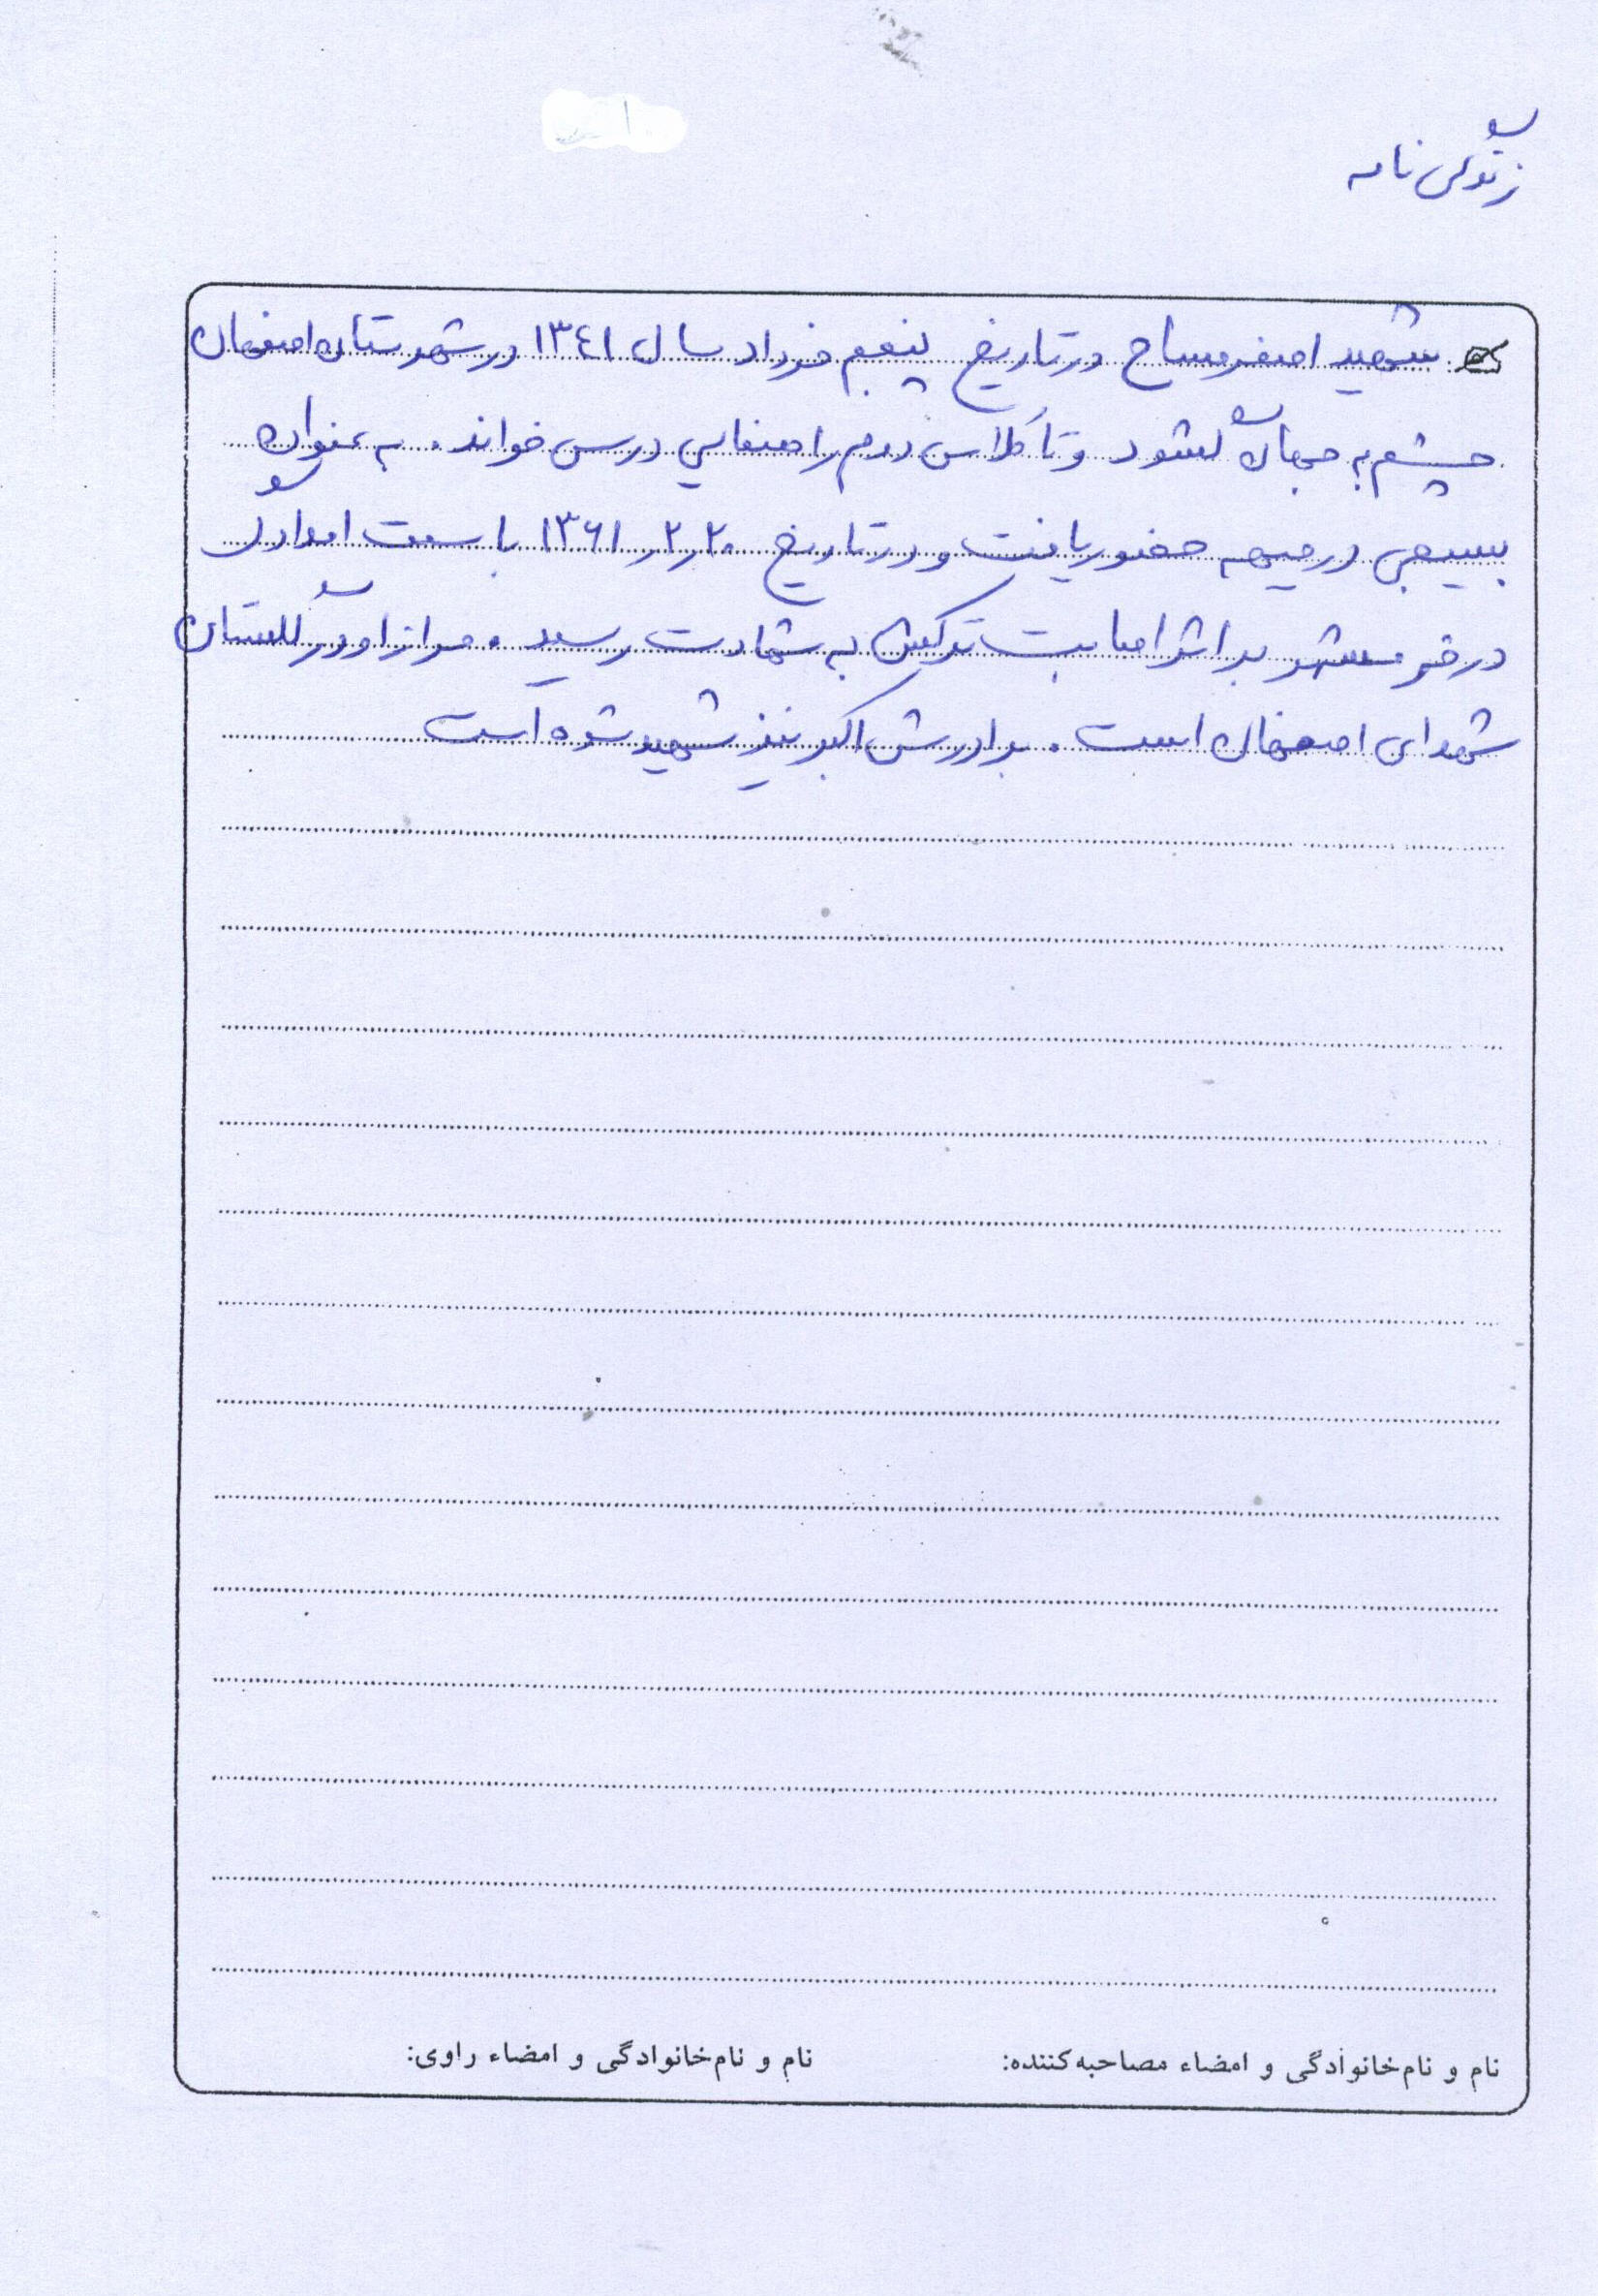 زندگی نامه
شهید اصغر مساح در تاریخ پنجم خرداد سال ۱۳۴۱ در شهرستان اصفهان
چشم به جهان گشود و تا کلاس دوم راهنمایی درس خواند. به عنوان
بسیجی در جبهه حضور یافت و در تاریخ ۱۳۶۱/۲/۲۰ با سمت امدادگر
در خرمشهر بر اثر اصابت ترکش به شهادت رسید. مزار او در گلستان
شهدای اصفهان است. برادرش اکبر نیز شهید شده است
نام و نام‌خانوادگی و امضاء مصاحبه‌کننده: نام و نام‌خانوادگی و امضاء راوی: